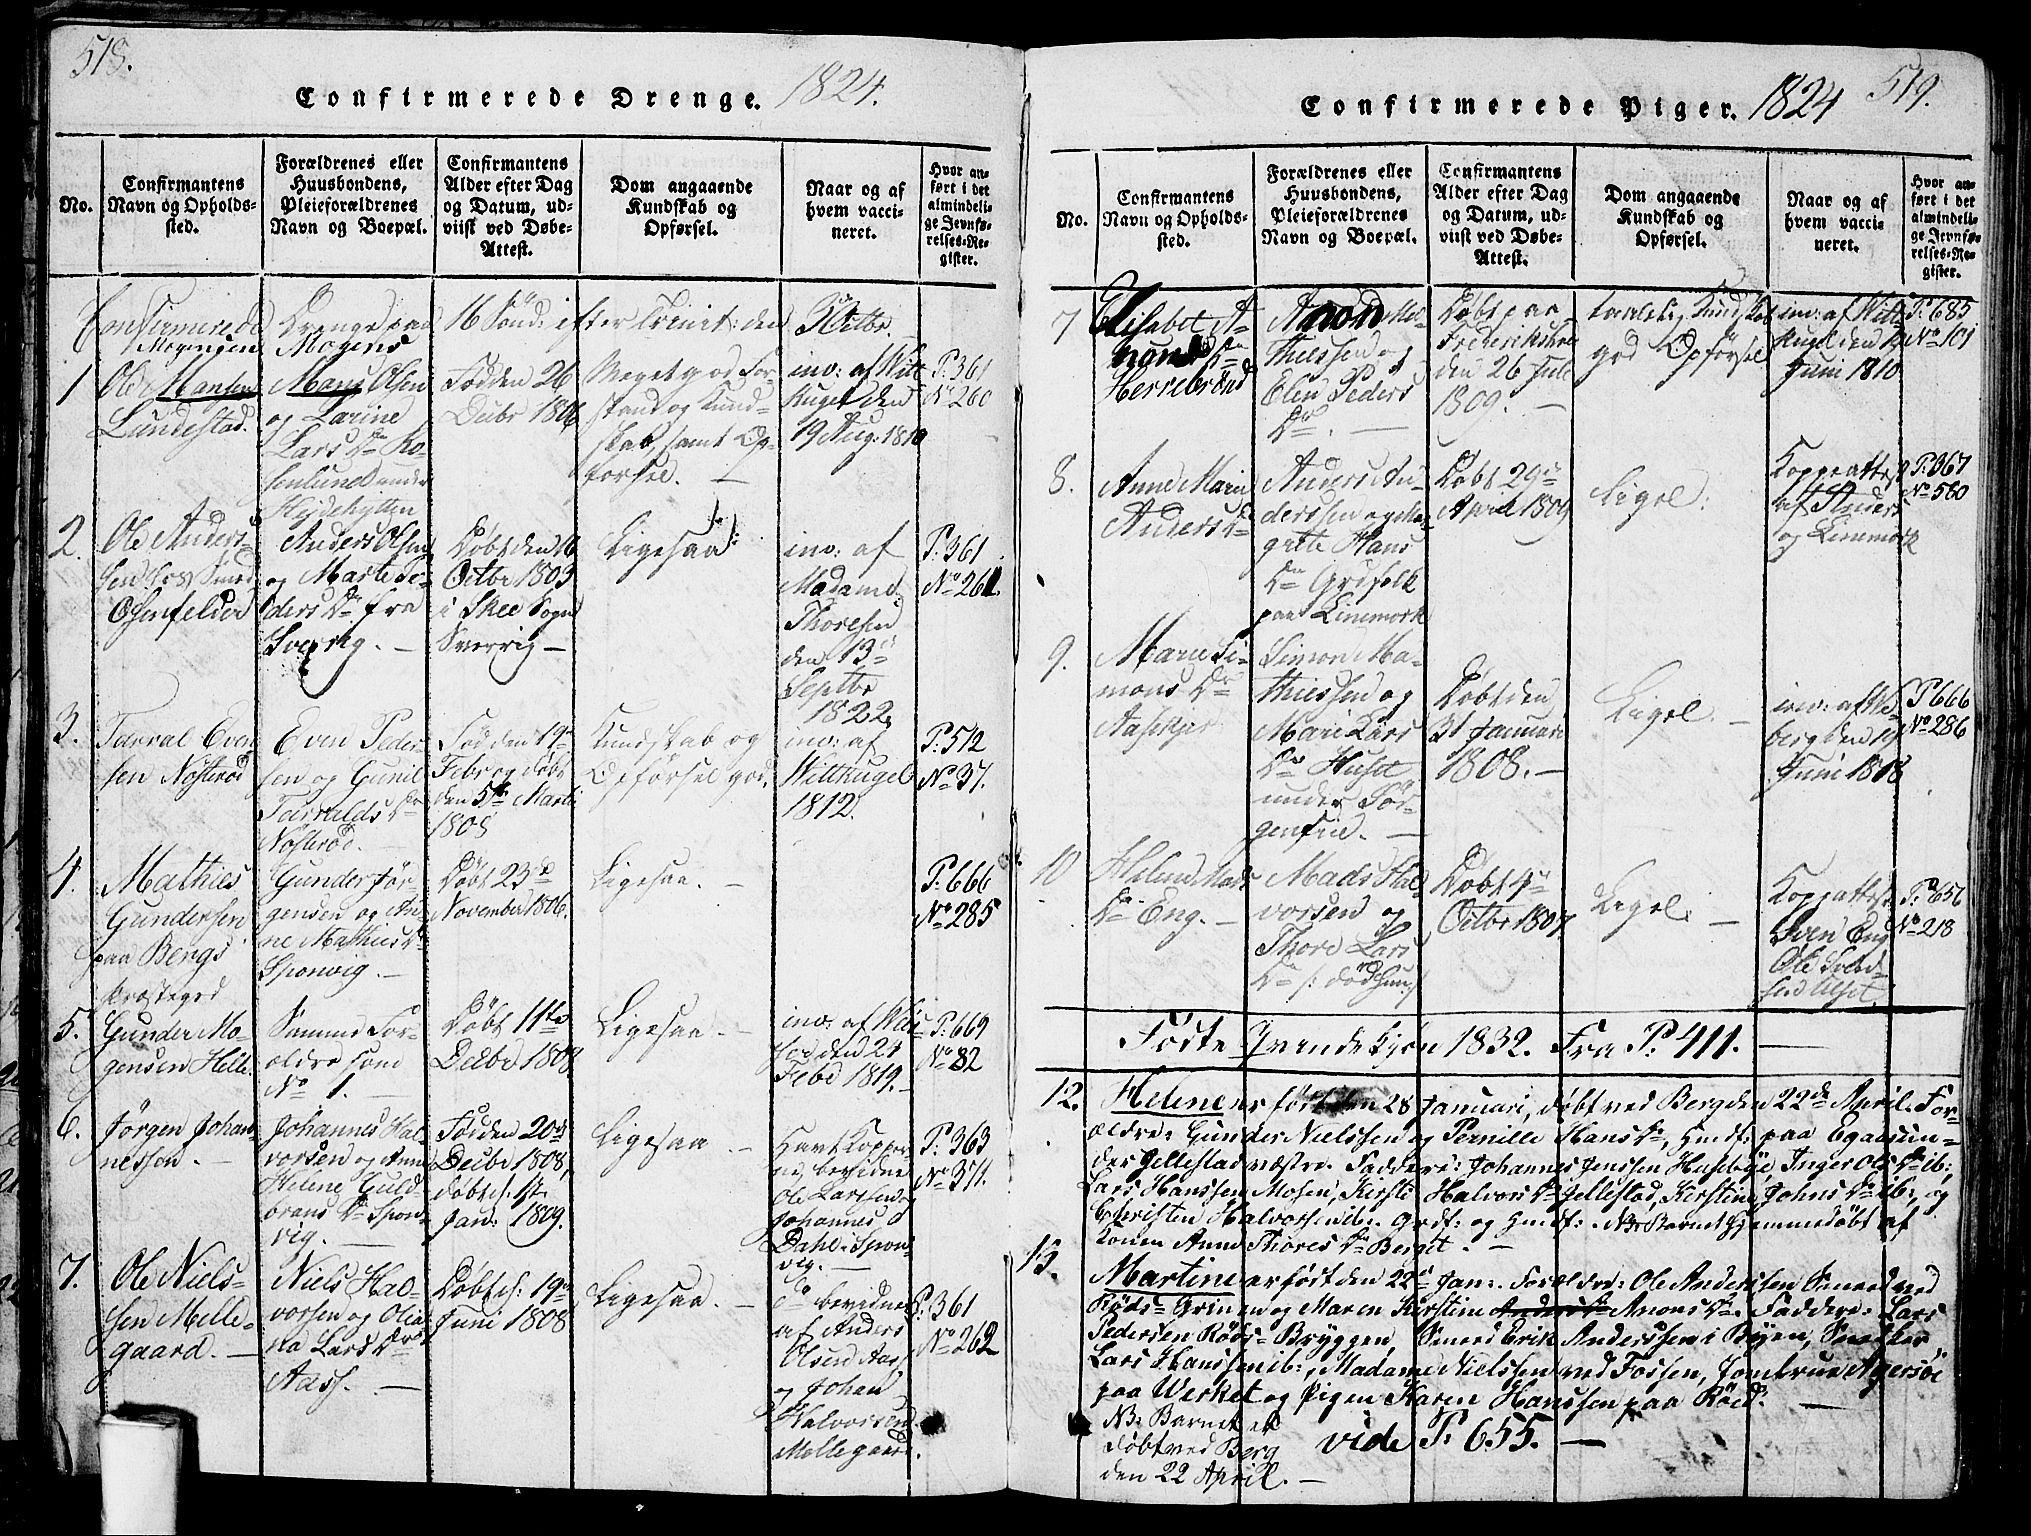 518.
Confirmerede Drenge. 1824.
No.
Confirmantens
Navn og Opholds-
sted.
Forældrenes eller
Huusbondens,
Pleieforældrenes
Navn og Boepæl.
Confirmantens
Alder efter Dag
og Datum, ud-
viist ved Døbe-
Attest.
Dom angaaende
Kundskab og
Opførsel.
Naar og af
hvem vacci-
neret.
Hvor an-
ført i det
almindeli-
ge Jevnfø-
relses-Re-
gister.
Confirmerede Drenge paa 16 Sönd: efter Trinit: den 3 Octbr.
1
Ole Mansen
Lundestad.
Mogens
Mans Olsen
og Larine
Lars Dr Ro-
senlund under
Hÿdehytten
Fød den 26
Decbr 1806
Meget god For-
stand og Kund-
skab, samt Op-
førsel. —
inv: af Witt-
kugel den
19 Aug: 1810
P: 361
No 260
2.
Ole Anders-
sen hos Smed
Osenfelder
Anders Olsen
og Marte Pe-
ders Dr fra
Sverrig. —
Döbt den 16
Octbr 1803
i Skee Sogn
Sverrig —
Ligesaa:
inv: af
Madame
Thoresen
den 13de
Septbr
1822
P: 361
No 261.
3.
Tarral Even
sen Nösterød
Even Peder-
sen og Gunil
Tarralds Dr
Nösterød. —
Fød den 19de
Febr og döbt
den 5te Marti
1808
Kundskab og
Opførsel god.
inv: af
Wittkugel
1812.
P: 512
No 37.
4.
Mathies
Gundersen
paa Bergs
Præstegrd
Gunder Jör-
gensen og An-
ne Mathies Dr
Sponvig. —
Döbt 23de
November 1806.
Ligesaa. —
P: 666
No 285
5.
Gunder Mo-
gensen Helle.
Samme For-
ældre som
No 1.
Döbt 11te
Decbr 1808
Ligesaa. —
inv: af
den 24
Febr 1819. —
P: 669
No 82
6.
Jörgen Johan-
nessen. —
Johannes Hal-
vorsen og Anne
Helene Guld-
brans Dr Spon-
vig. —
Fød den 20de
Decbr 1808,
döbt d: 1st
Jan: 1809.
Ligesaa —
Havt Kopper
ne, bevidne
Ole Larssen og
Johannes O
Dahl i Spon-
vig. —
P: 363
No 371.
7.
Ole Niels-
sen Mölle-
gaard. —
Niels Hal-
vorssen og Olia-
na Lars Dr
Aass. —
Döbt d: 19de
Juni 1808
Ligesaa. —
Do bevidner
af Anders
Olsen Aass
og Johan
Halvorsen
Möllegaard.
P: 361
No 262
519.
Confirmerede Piger. 1824
No.
Confirmantens
Navn og Opholds-
sted.
Forældrenes eller
Huusbondens,
Pleieforældrenes
Navn og Boepæl.
Confirmantens
Alder efter Dag
og Datum, ud-
viist ved Døbe-
Attest.
Dom angaaende
Kundskab og
Opførsel.
Naar og af
hvem vacci-
neret.
Hvor an-
ført i det
almindeli-
ge Jevnfø-
relses-Re-
gister.
7
Elisabet A-
rons Dr
Herrebrönd
Aaron Ma-
thiessen og
Elen Peders
Dr. —
Döbt paa
Frederikshald
den 26 Juli
1809. —
taalelig Kundskab
god Opførsel
inv: af Witt-
kugel den 12
Juni 1810
P: 685
No 101
8.
Anne Marie
Anders Dr
Anders An-
derssen og Mar-
grete Hans
Dr Grifolk
paa Linemork
Döbt 29de
April 1809
Ligel:
Koppeattest
af Anders
og Linemork
P: 367
No 580
9.
Marie Si-
mons Dr
Aaskjer
Simon Ma-
thiessen og
Mari Lars
Dr Huset
under Jör-
genfrie. —
Döbt den
31 Januari
1808. —
Ligel. —
inv: af We-
berg den 19
Juni 1818
P 666
No 286
10
Helene Mads
Dr Eng. —
Mads Hal-
vorsen og
Thore Lars
Dr
Döbt 4de
Octbr 1807.
Ligel: —
Koppattest
Sven Eng
Ole Svend-
sen
P: 656
No 218
Fødte Qvindekjön 1832. Fra P: 411. —
12.
Helene er født den 28 Januari, döbt ved Berg den 22de April. For-
ældre: Gunder Nielssen og Pernille Hans Dr, Husmf: paa Egaas un-
der Gellestad væstre. Faddere: Johannes Jenssen Husebye, Inger Ols Dr ib:,
Lars Hanssen Mosen, Kirsti Halvors Dr Gellestad, Kirstine Johns Dr ib:, og
Christen Halvorsen ib:. Grdf: og Husmf:. NB: Barnet hjemmedöbt af
Konen Anne Thores Dr Berget. —
13.
Martine er født den 22de Jan:. Forældre: Ole Anderssen Smed ved
Röds-Grinen og Maren Kirstine Anders Dr Arons Dr. Faddere: Lars
Pedersen Röds-Bryggen, Smed Erik Anderssen i Byen, Snedker
Lars Hanssen ib:, Madame Nielssen ved Fossen, Jomfrue Agersöe
paa Werket og Pigen Karen Hanssen paa Röed. —
NB: Barnet er
döbt ved Berg
den 22 April. —
vide P: 655. —